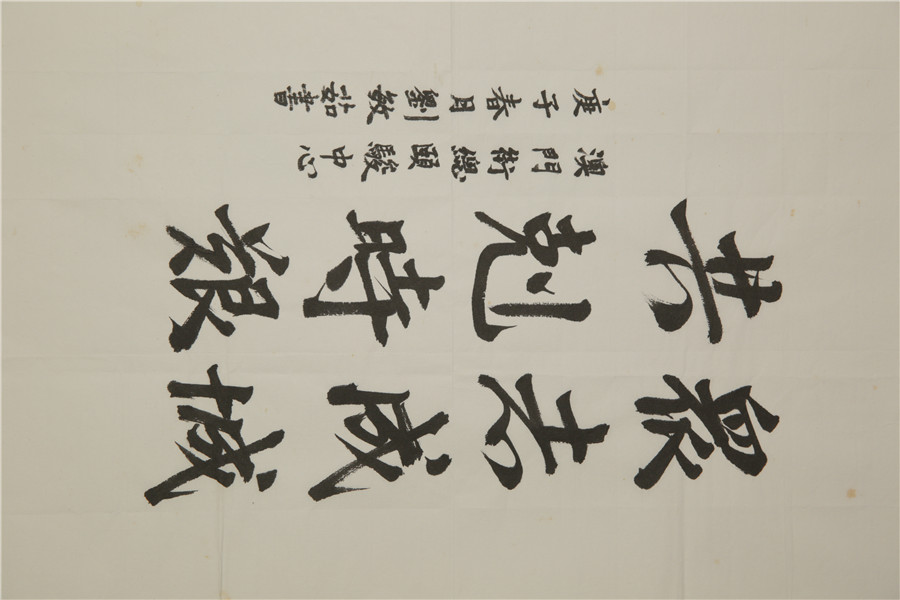 眾志成城
共剋時艰
澳門街總頤駿中心
庚子春月劉敏茹書